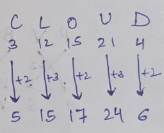 C L O U D
3 12 15 21 4
+2 +3 +2 +3 +2
5 15 17 24 6